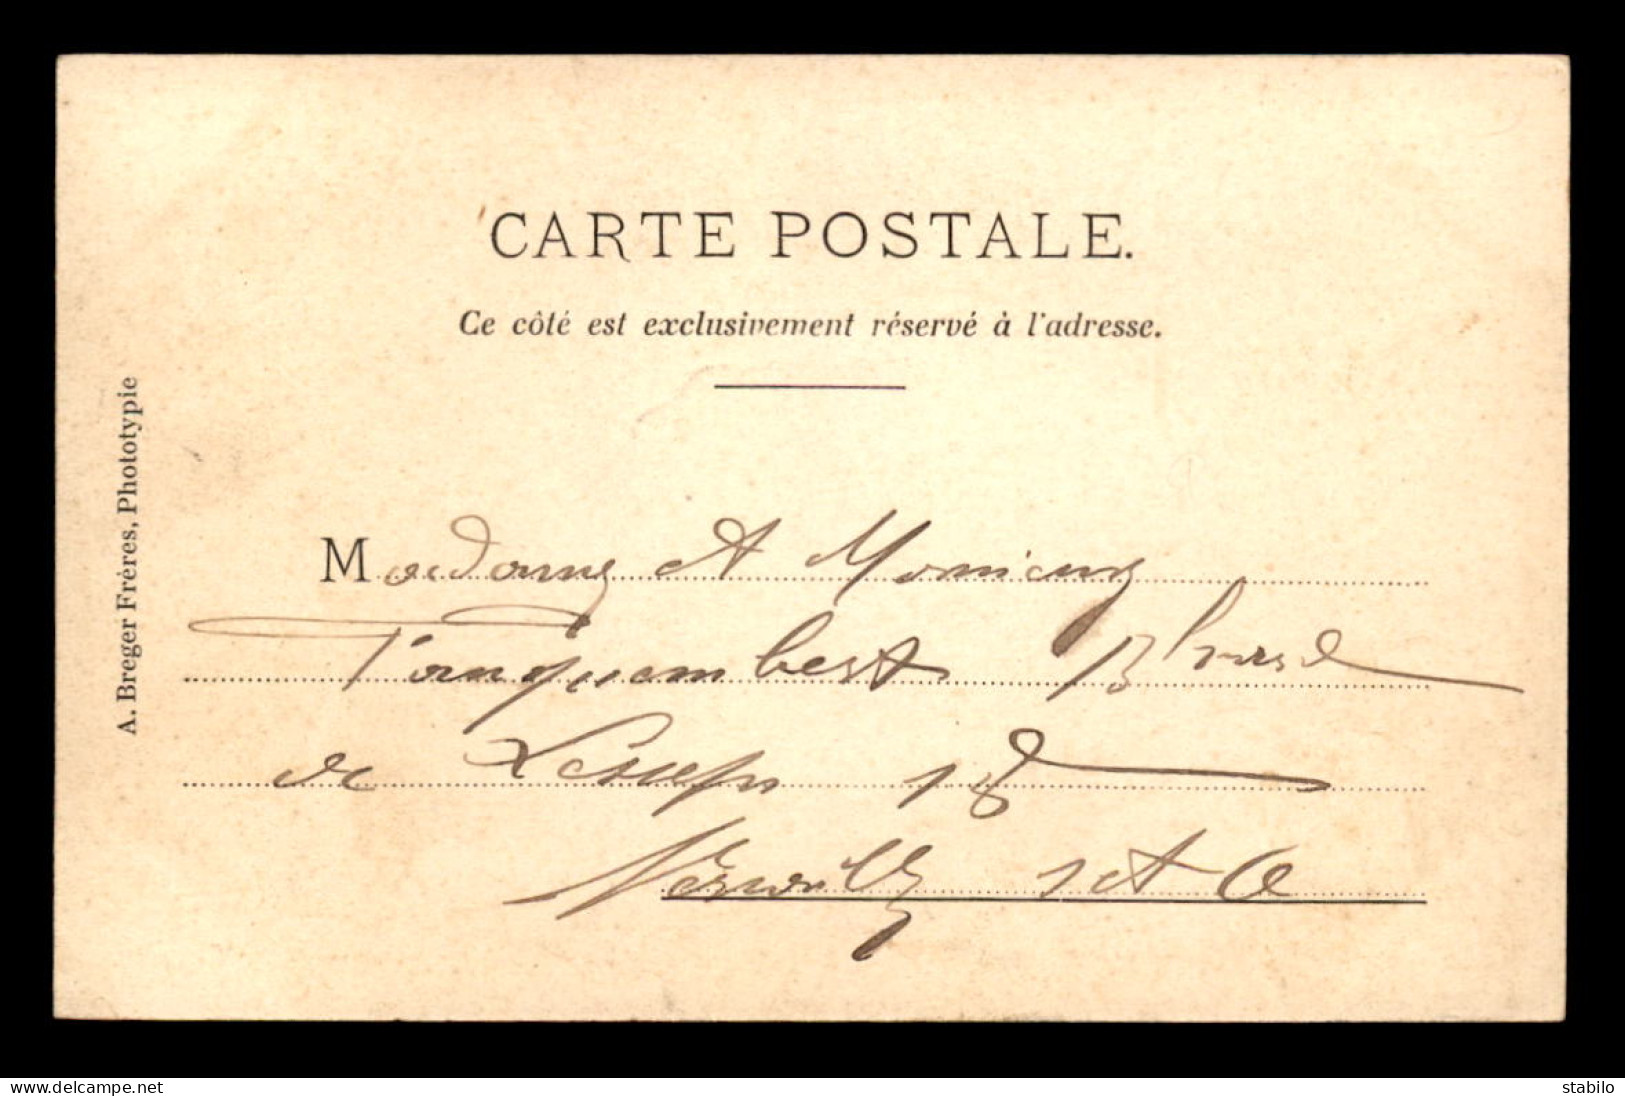 CARTE POSTALE.
Ce côté est exclusivement réservé à l'adresse.
A. Breger Frères, Phototypie
Madame et Monsieur
Tanquembest 13
de Lesseps 18
Versailles S et O
www.delcampe.net
stabilo